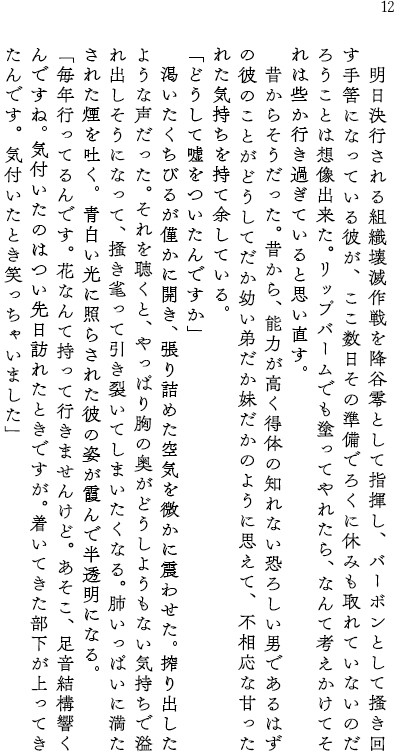 12
明日決行される組織壊滅作戦を降谷零として指揮し、バーボンとして掻き回
す手筈になっている彼が、ここ数日その準備でろくに休みも取れていないのだ
ろうことは想像出来た。リップバームでも塗ってやれたら、なんて考えかけてそ
れは些か行き過ぎていると思い直す。
昔からそうだった。昔から、能力が高く得体の知れない恐ろしい男であるはず
の彼のことがどうしてだか幼い弟だか妹だかのように思えて、不相応な甘った
れた気持ちを持て余している。
「どうして嘘をついたんですか」
渇いたくちびるが僅かに開き、張り詰めた空気を微かに震わせた。搾り出した
ような声だった。それを聴くと、やっぱり胸の奥がどうしようもない気持ちで溢
れ出しそうになって、掻き毟って引き裂いてしまいたくなる。肺いっぱいに満た
された煙を吐く。青白い光に照らされた彼の姿が霞んで半透明になる。
「毎年行ってるんです。花なんて持って行きませんけど。あそこ、足音結構響く
んですね。気付いたのはつい先日訪れたときですが。着いてきた部下が上ってき
たんです。気付いたとき笑っちゃいました」